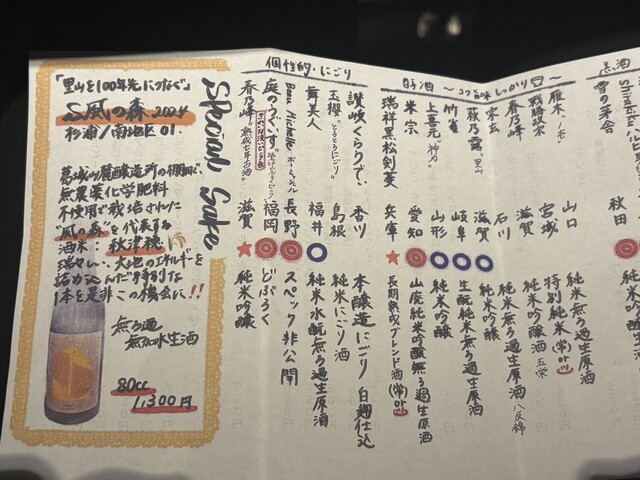 「里山を100年先につなぐ」
風の森 2024
杉浦/南地区 01.
葛城山麓醸造所の棚田で、
無農薬化学肥料
不使用で栽培された
"風の森"を代表する
酒米:秋津穂
瑞々しい、大地のエネルギーを
詰め込んだ特別な
1本を是非この機会に!!
無ろ過
無加水生酒
80cc
1,300円
Special Sake
個性的・にごり
讃岐くらうで、 香川 本醸造にごり 白麹仕込
玉櫻"とろとろにごり" 島根 純米にごり酒
舞美人 福井 純米水酛無ろ過生原酒
Beau Michelle ボー・ミッシェル 長野 スペック非公開
庭のうぐいす 福岡 どぶろく
春乃峰"熟成七年古酒" 滋賀 純米吟醸
醇酒 〜コク旨味しっかり〜
雁木"ノ壱" 山口 純米無ろ過生原酒
戦勝政宗 宮城 特別純米(常)or
春乃峰 滋賀 純米吟醸酒 玉栄
宗玄 石川 純米無ろ過生原酒 八反錦
萩乃露"里山" 滋賀 純米吟醸
竹雀 岐阜 生酛純米無ろ過生原酒
上喜元"神力" 山形 純米吟醸
米宗 愛知 山廃純米吟醸無ろ過生原酒
瑞祥黒松剣菱 兵庫 長期熟成ブレンド酒(常)or
雪の茅舎 秋田